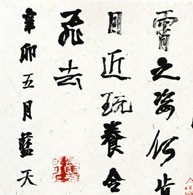 霄之姿何肯
目近玩養令
飛去
辛卯五月藍天